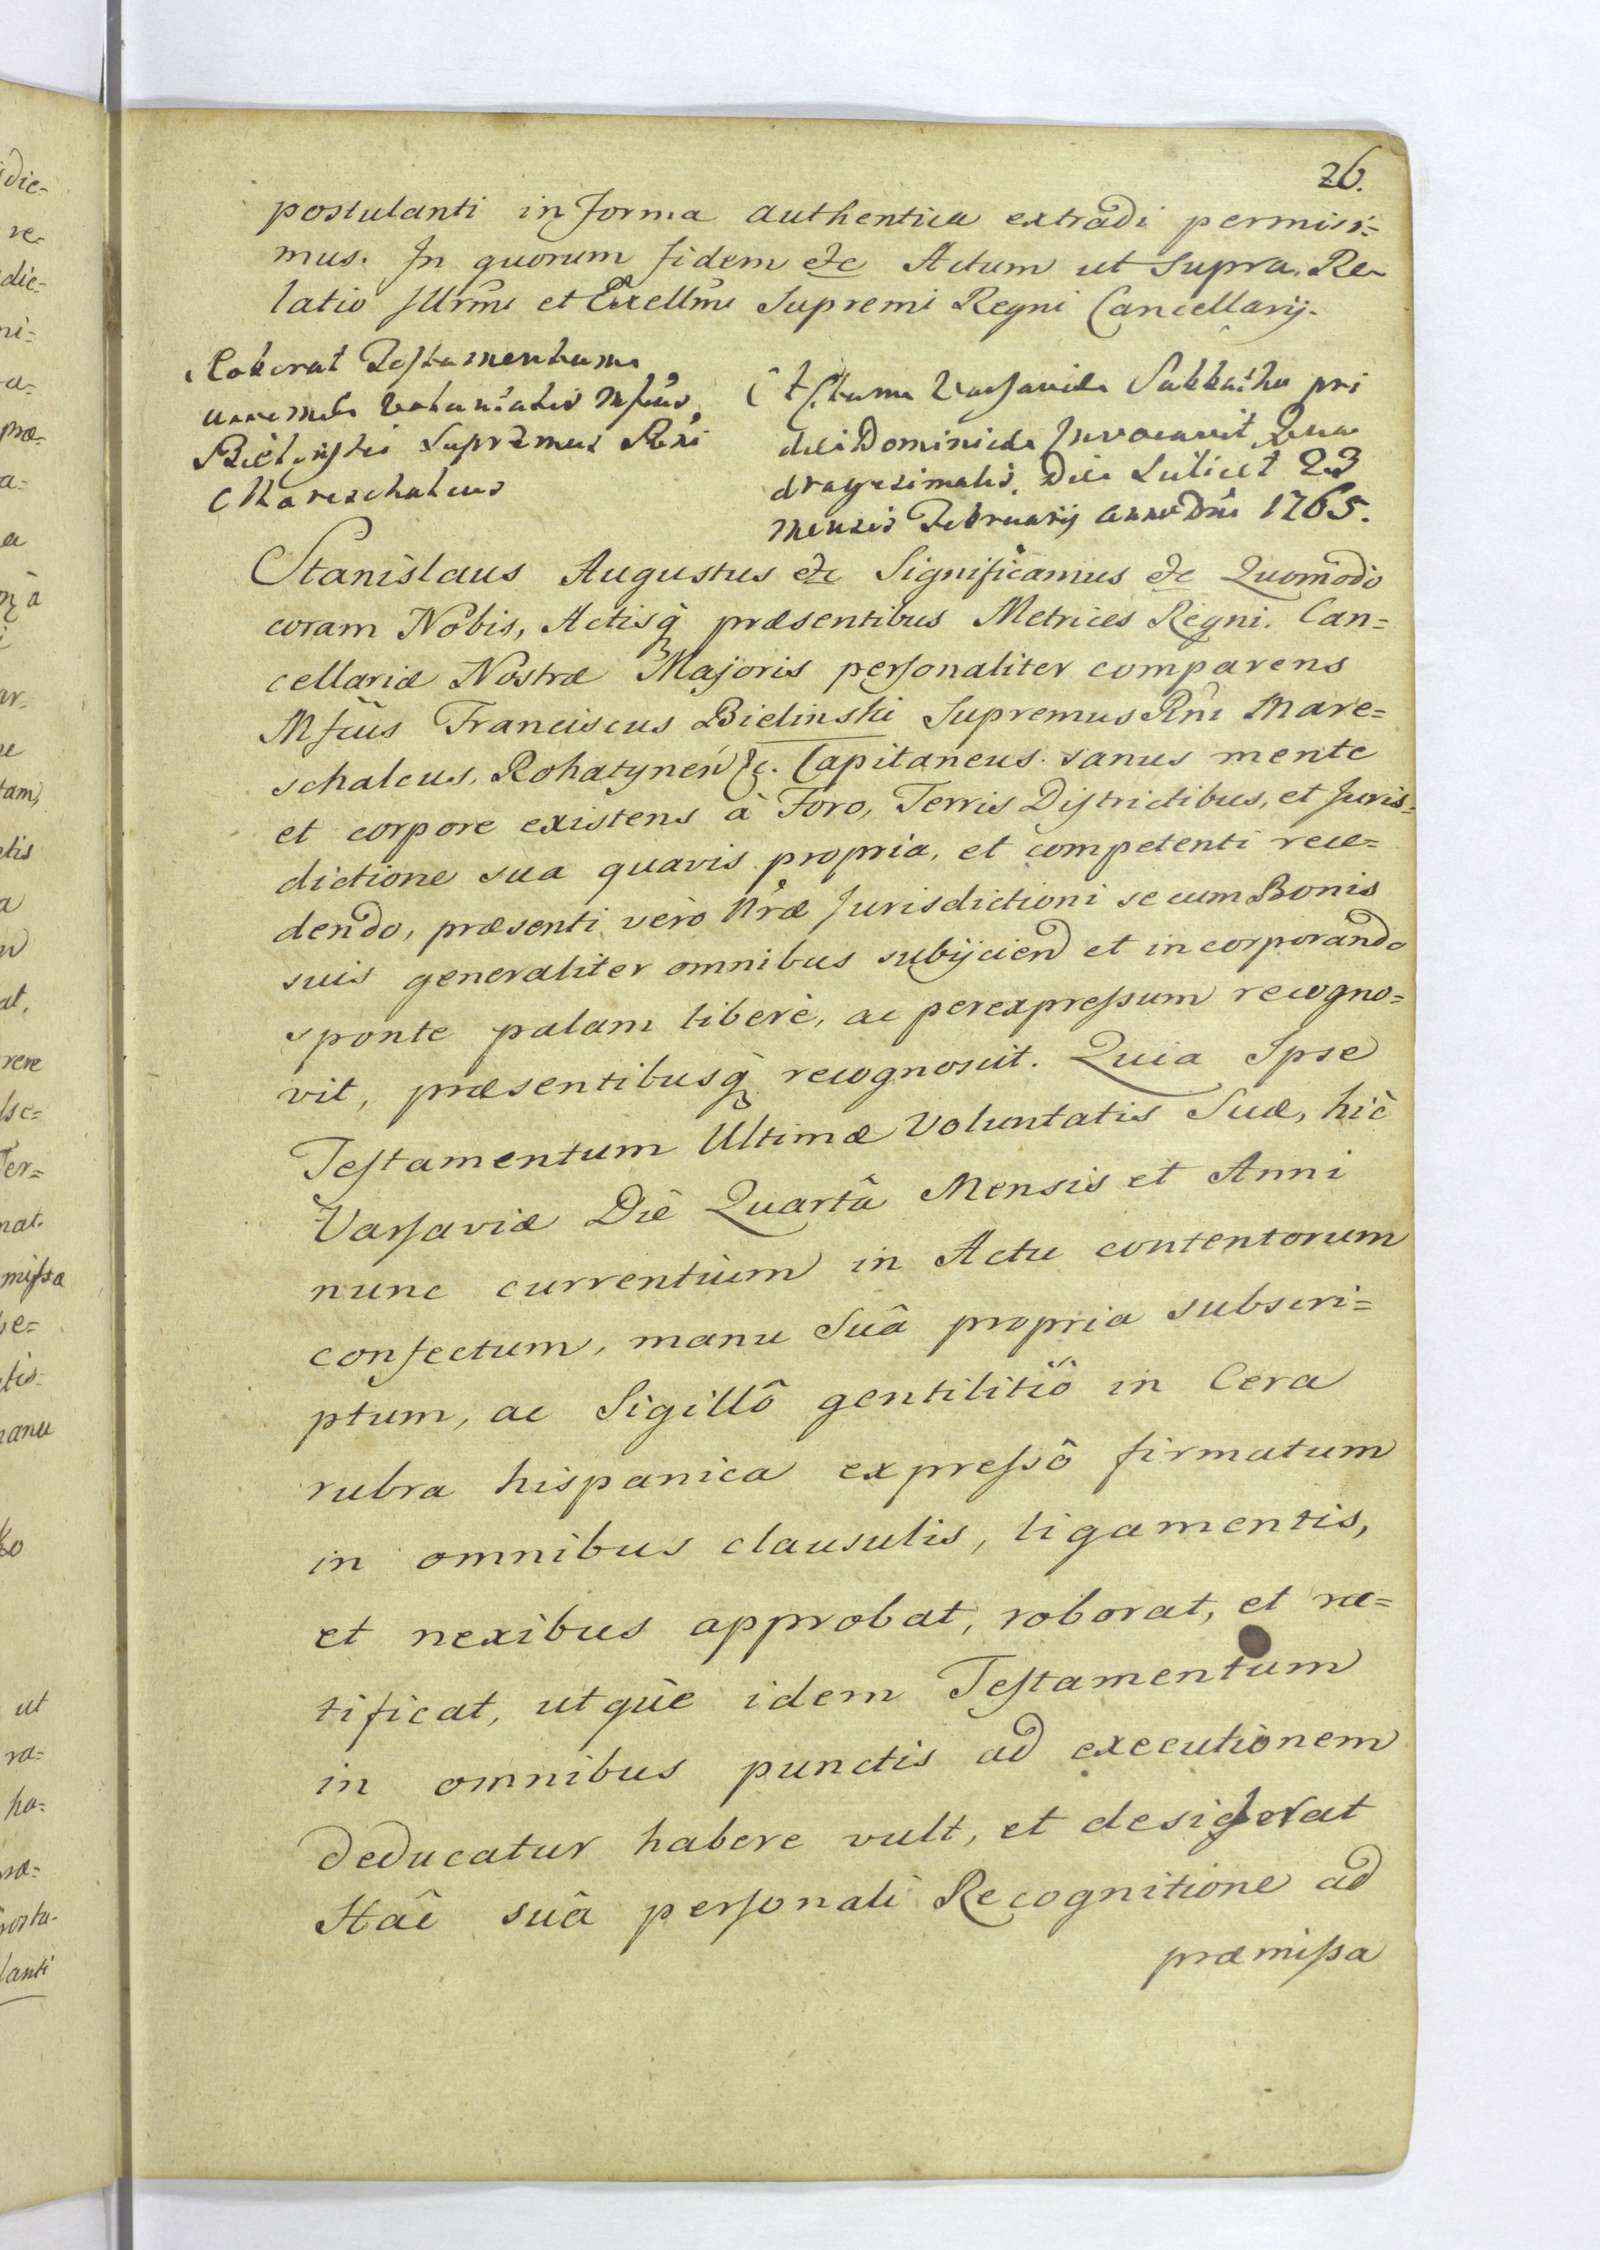 26.
postulanti in forma authentica extradi permisi=
mus. In quorum fidem etc Actum ut supra. Re-
latio Illrmi et Excellmi Supremi Regni Cancellarij.
Roborat Testamentum
Voluntatis Msfcus
Bielinski Supremus Rni
Mareschalcus
Actum Varsaviæ Sabbatho pri
die Dominicæ Invocavit Qua
dragesimalis. Die Scilicet 23
mensis Februarij anno Dni 1765.
Stanislaus Augustus etc Significamus etc Quomodo
coram Nobis, Actisq præsentibus Metrices Regni. Can=
cellariæ Nostræ Majoris personaliter comparens
Msfcus Franciscus Bielinski Supremus Rni Mare=
schalcus, Rohatynen &c. Capitaneus sanus mente
et corpore existens à Foro, Terris Districtibus, et Juris=
dictione sua quavis propria, et competenti rece=
dendo, præsenti verò Nræ Jurisdictioni se cum Bonis
suis generaliter omnibus subijciend et incorporando
sponte palam liberè, ac perexpressum recogno=
vit, præsentibusq recognoscit. Quia Ipse
Testamentum Ultimæ Voluntatis Suæ, hic
Varsaviæ Diê Quartâ Mensis et Anni
nunc currentium in Actu contentorum
confectum, manu Suâ propria subscri=
ptum, ac Sigillô gentilitiô in Cera
rubra hispanica expressô firmatum
in omnibus clausulis, ligamentis,
et nexibus approbat, roborat, et ra=
tificat, utque idem Testamentum
in omnibus punctis ad executionem
deducatur habere vult, et desiderat
Hâc suâ personali Recognitione ad
præmissa